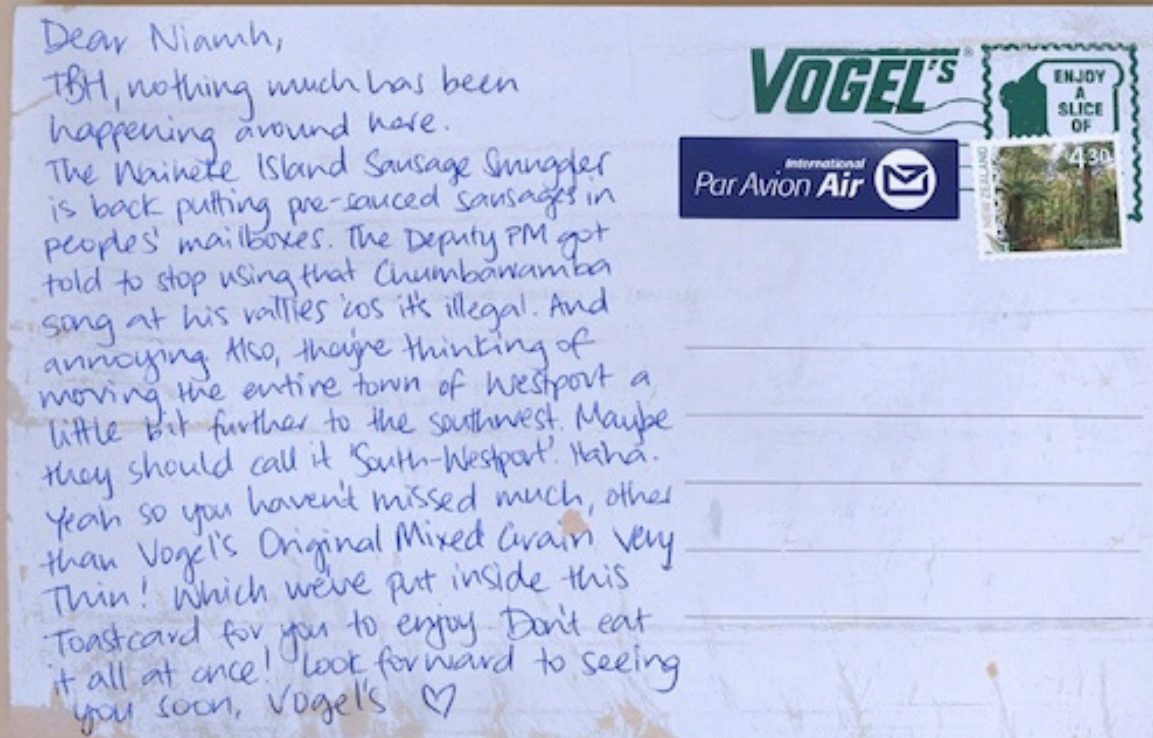 Dear Niamh,
TBH, nothing much has been
happening around here.
The Waiheke Island Sausage Smuggler
is back putting pre-sauced sausages in
peoples' mailboxes. The Deputy PM got
told to stop using that Chumbawamba
song at his rallies 'cos it's illegal. And
annoying. Also, they're thinking of
moving the entire town of Westport a
little bit further to the southwest. Maybe
they should call it 'South-Westport'. Haha.
Yeah so you haven't missed much, other
than Vogel's Original Mixed Grain Very
Thin! Which we've put inside this
Toastcard for you to enjoy. Don't eat
it all at once! Look forward to seeing
you soon, Vogel's ♡
VOGEL'S®
ENJOY
A
SLICE
OF
International
Par Avion Air
NEW ZEALAND
4.30